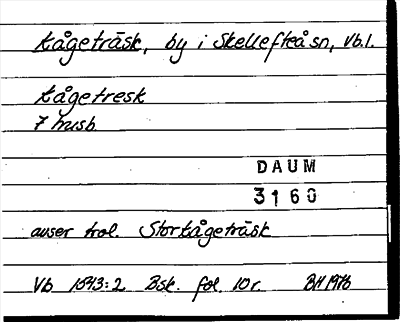 Kågeträsk, by i Skellefteå sn, Vb.l.
Kågetresk
7 husb.
DAUM
3160
avser trol. Storkågeträsk
Vb 1543:2 Bsk. fol. 10r. BH 1976